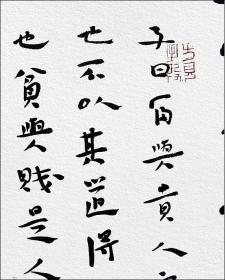 子曰富與貴人
也不以其道得
也貧與賤是人